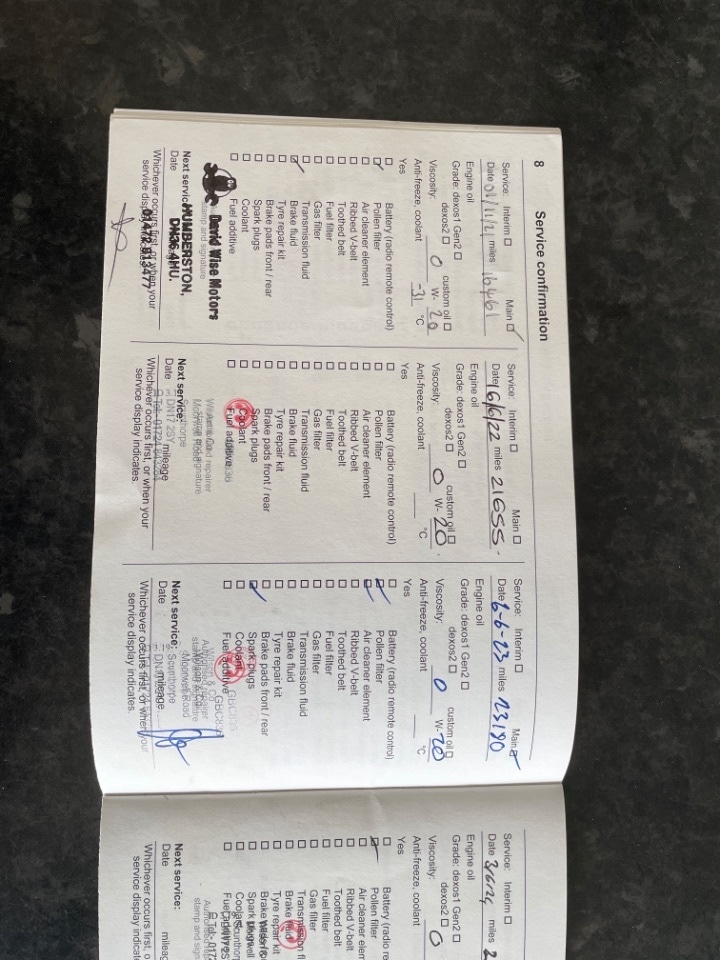 8 Service confirmation
Service: Interim Main
Date 01/11/21 miles 16461
Engine oil
Grade: dexos1 Gen2
dexos2 custom oil
Viscosity: 0 W- 20
Anti-freeze, coolant -31 °C
Yes
Battery (radio remote control)
Pollen filter
Air cleaner element
Ribbed V-belt
Toothed belt
Fuel filter
Gas filter
Transmission fluid
Brake fluid
Tyre repair kit
Brake pads front / rear
Spark plugs
Coolant
Fuel additive
David Wise Motors
stamp and signature
Next service:
HUMBERSTON,
Date
DN36 4HU.
Whichever occurs first, or when your
service display indicates
01472 813477
Service: Interim Main
Date 16/6/22 miles 21655
Engine oil
Grade: dexos1 Gen2
dexos2 custom oil
Viscosity: 0 W- 20
Anti-freeze, coolant °C
Yes
Battery (radio remote control)
Pollen filter
Air cleaner element
Ribbed V-belt
Toothed belt
Fuel filter
Gas filter
Transmission fluid
Brake fluid
Tyre repair kit
Brake pads front / rear
Spark plugs
Coolant
Fuel additive
Next service:
Scunthorpe
Date mileage
DN17 2SY
Whichever occurs first, or when your
service display indicates.
Service: Interim Main
Date 6-6-23 miles 23190
Engine oil
Grade: dexos1 Gen2
dexos2 custom oil
Viscosity: 0 W- 20
Anti-freeze, coolant °C
Yes
Battery (radio remote control)
Pollen filter
Air cleaner element
Ribbed V-belt
Toothed belt
Fuel filter
Gas filter
Transmission fluid
Brake fluid
Tyre repair kit
Brake pads front / rear
Spark plugs
Coolant
Fuel additive
Next service:
Scunthorpe
Date mileage
Whichever occurs first, or when your
service display indicates.
Service: Interim
Date miles
Engine oil
Grade: dexos1 Gen2
dexos2
Viscosity: 0
Anti-freeze, coolant
Yes
Battery (radio re
Pollen filter
Air cleaner elem
Ribbed V-belt
Toothed belt
Fuel filter
Gas filter
Transmission fl
Brake fluid
Tyre repair kit
Brake pads
Spark plugs
Coolant
Fuel additive
stamp and sign
Next service:
Date mileag
Whichever occurs first, o
service display indicat